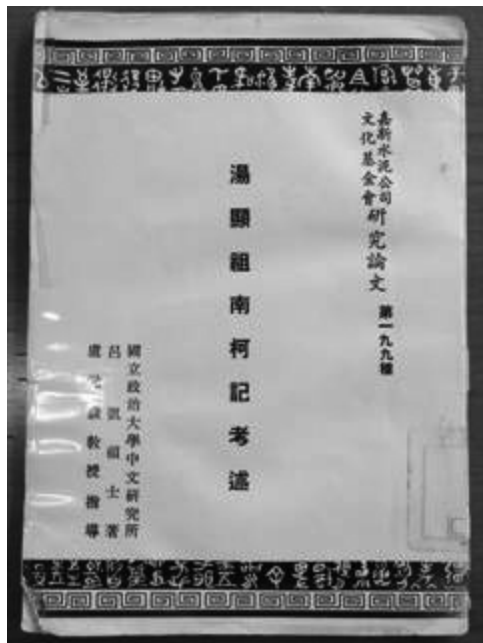 嘉新水泥公司
文化基金會
研究論文
第一九九種
湯顯祖南柯記考述
國立政治大學中文研究所
呂凱碩士著
盧 教授指導